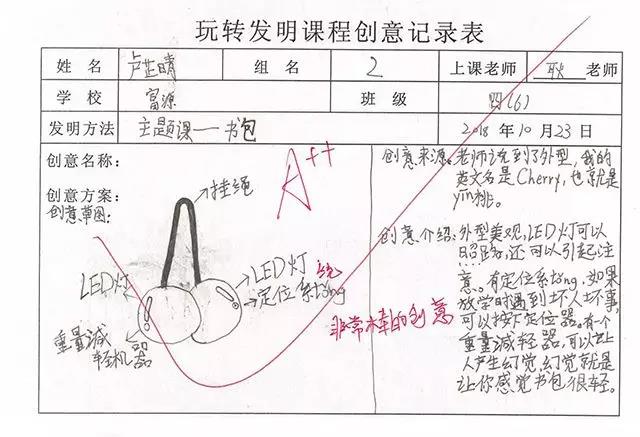 玩转发明课程创意记录表
姓 名 卢芷晴 组 名 2 上课老师 耿 老师
学 校 富源 班 级 四(6)
发明方法 主题课——书包 2018 年 10 月 23 日
创意名称:
创意方案:
创意草图:
A++
挂绳
LED灯
LED灯
定位系tǒng
统
重量减
轻机器
非常棒的创意
创意来源:老师说到了外型,我的
英文名是Cherry,也就是
yīn桃。
创意介绍:外型美观,LED灯可以
照路,还可以引起注
意。有定位系tǒng,如果
放学时遇到坏人坏事,
可以按下定位器。有个
重量减轻器,可以让
人产生幻觉,幻觉就是
让你感觉书包很轻。